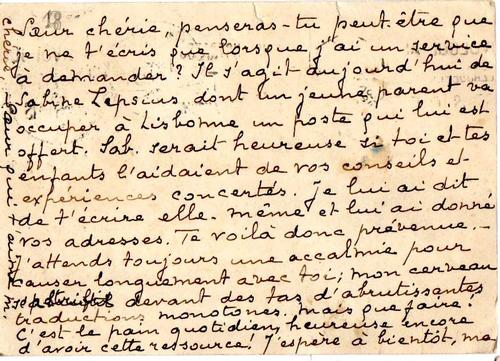 Sœur chérie, penseras-tu peut-être que
je ne t'écris que lorsque j'ai un service
à demander? Il s'agit aujourd'hui de
Sabine Lepsius dont un jeune parent va
occuper à Lisbonne un poste qui lui est
offert. Sab. serait heureuse si toi et tes
enfants l'aidaient de vos conseils et
expériences concertés. Je lui ai dit
de t'écrire elle-même et lui ai donné
vos adresses. Te voilà donc prévenue. -
J'attends toujours une accalmie pour
causer longuement avec toi; mon cerveau
devant des tas d'abrutissantes
traductions monotones. Mais que faire!
C'est le pain quotidien, heureuse encore
d'avoir cette ressource! J'espère à bientôt, ma
chérie. Sœur qui t'aime